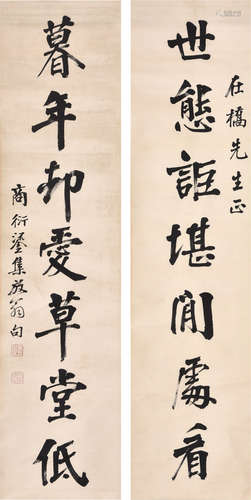 在橋先生正
世態詎堪閒處看
暮年却愛草堂低
商衍鎏集放翁句